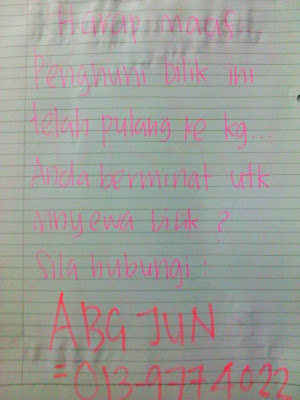 Harap maaf
Penghuni bilik ini
telah pulang ke kg...
Anda berminat utk
mnyewa bilik?
Sila hubungi:
ABG JUN
= 013-9774022